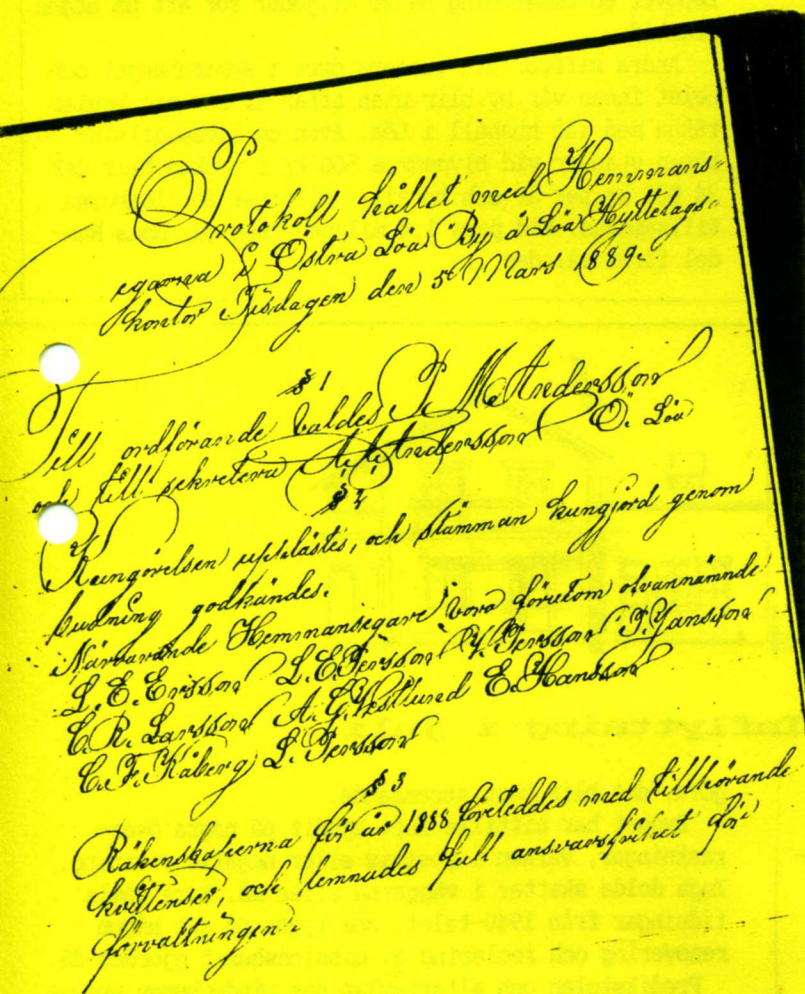 Protokoll hållet med Hemmans-
egarna i Östra Löa By å Löa Hyttelags-
kontor Tisdagen den 5 Mars 1889.
§ 1
Till ordförande valdes P. M. Andersson
och till sekretera A. A. Andersson Ö. Löa
§ 2
Kungörelsen upplästes, och stämman kungjord genom
budning godkändes.
Närvarande Hemmansegare voro förutom ofvannämnde
L. E. Ersson L. E. Persson V. Persson P. Jansson
E. R. Larsson A. G. Vestlund E. Hansson
C. F. Kåberg L. Persson
§ 3
Räkenskaperna för år 1888 företeddes med tillhörande
kvittenser, och lemnades full ansvarsfrihet för
förvaltningen.